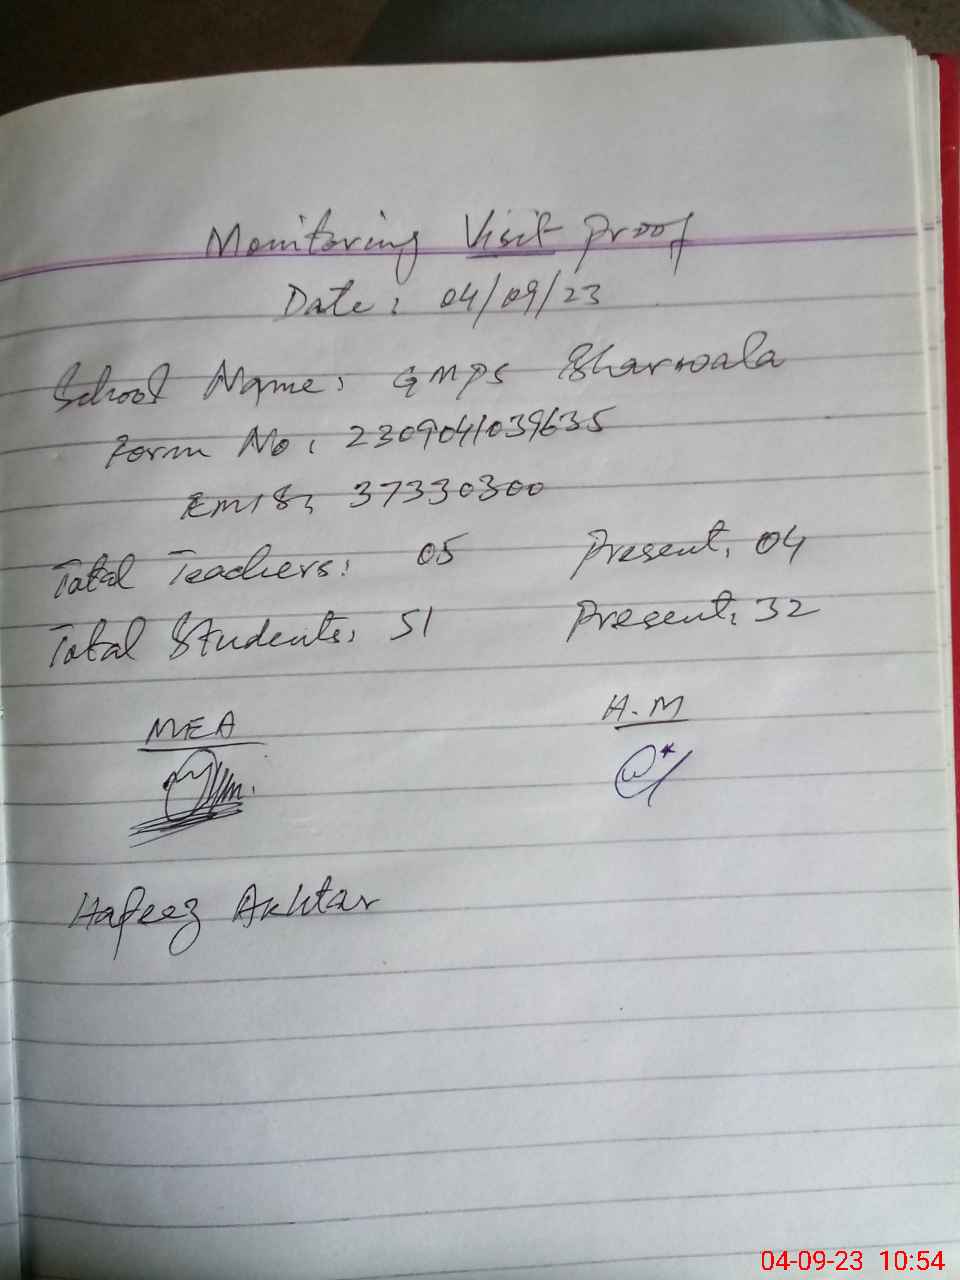 Monitoring Visit Proof
Date: 04/09/23
School Name: GMPS Bharwala
Form No: 2309041039635
EMIS: 37330300
Total Teachers: 05 Present: 04
Total Students: 51 Present: 32
MEA H.M
Hafeez Akhtar
04-09-23 10:54